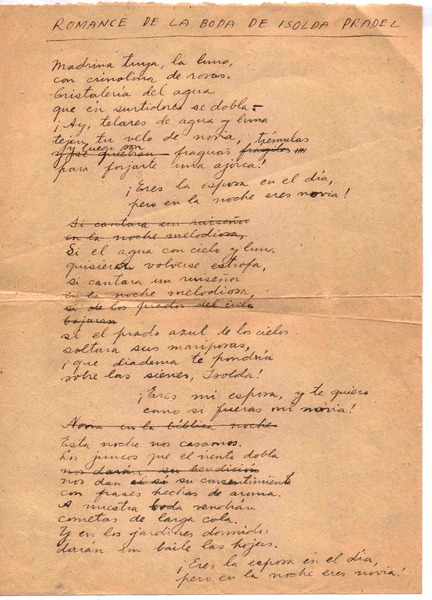 ROMANCE DE LA BODA DE ISOLDA PRADEL
Madrina tuya, la luna,
con crinolina de rosas.
Cristalería del agua
que en surtidores se dobla.
¡Ay, telares de agua y luna
tejen tu velo de novia,
y luego son fraguas trémulas
para forjarte una ajorca!
¡Eres la esposa en el día,
pero en la noche eres novia!
Si cantara un ruiseñor
en la noche melodiosa,
Si el agua con cielo y luna
quisiera volverse estrofa,
si cantara un ruiseñor
en la noche melodiosa,
si de los prados del cielo
bajaran
si el prado azul de los cielos
soltara sus mariposas,
¡que diadema te pondría
sobre las sienes, Isolda!
¡Eres mi esposa, y te quiero
como si fueras mi novia!
Novia en la bíblica noche
Esta noche nos casamos.
Los juncos que el viento dobla
nos darán su bendición
nos dan su consentimiento
con frases hechas de aroma.
A nuestra boda vendrán
cometas de larga cola.
Y en los jardines dormidos
darán un baile las hojas.
¡Eres la esposa en el día,
pero en la noche eres novia!